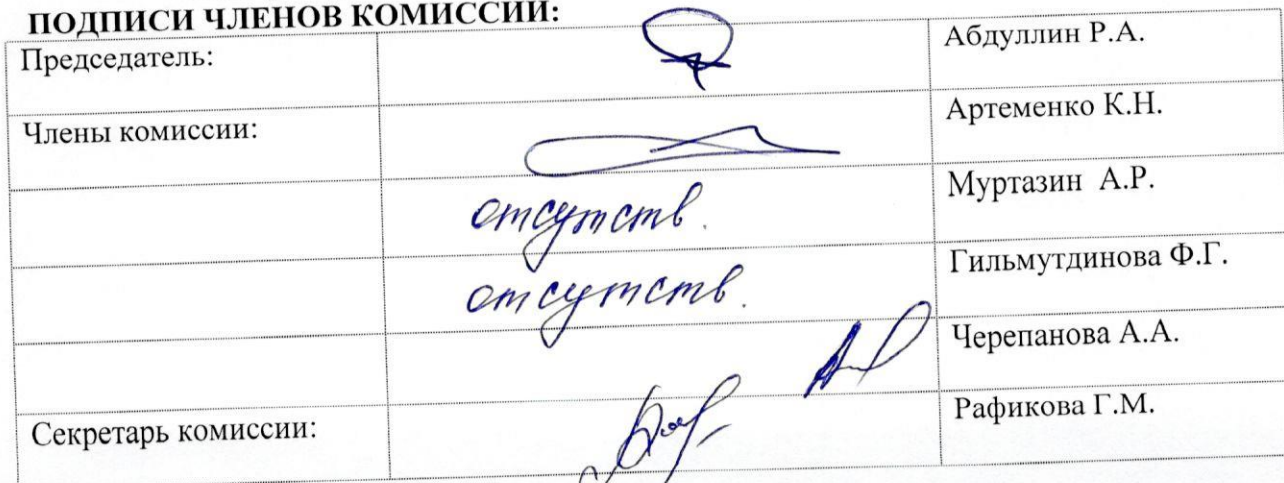 ПОДПИСИ ЧЛЕНОВ КОМИССИИ:
Председатель: Абдуллин Р.А.
Члены комиссии: Артеменко К.Н.
отсутств. Муртазин А.Р.
отсутств. Гильмутдинова Ф.Г.
Черепанова А.А.
Секретарь комиссии: Рафикова Г.М.